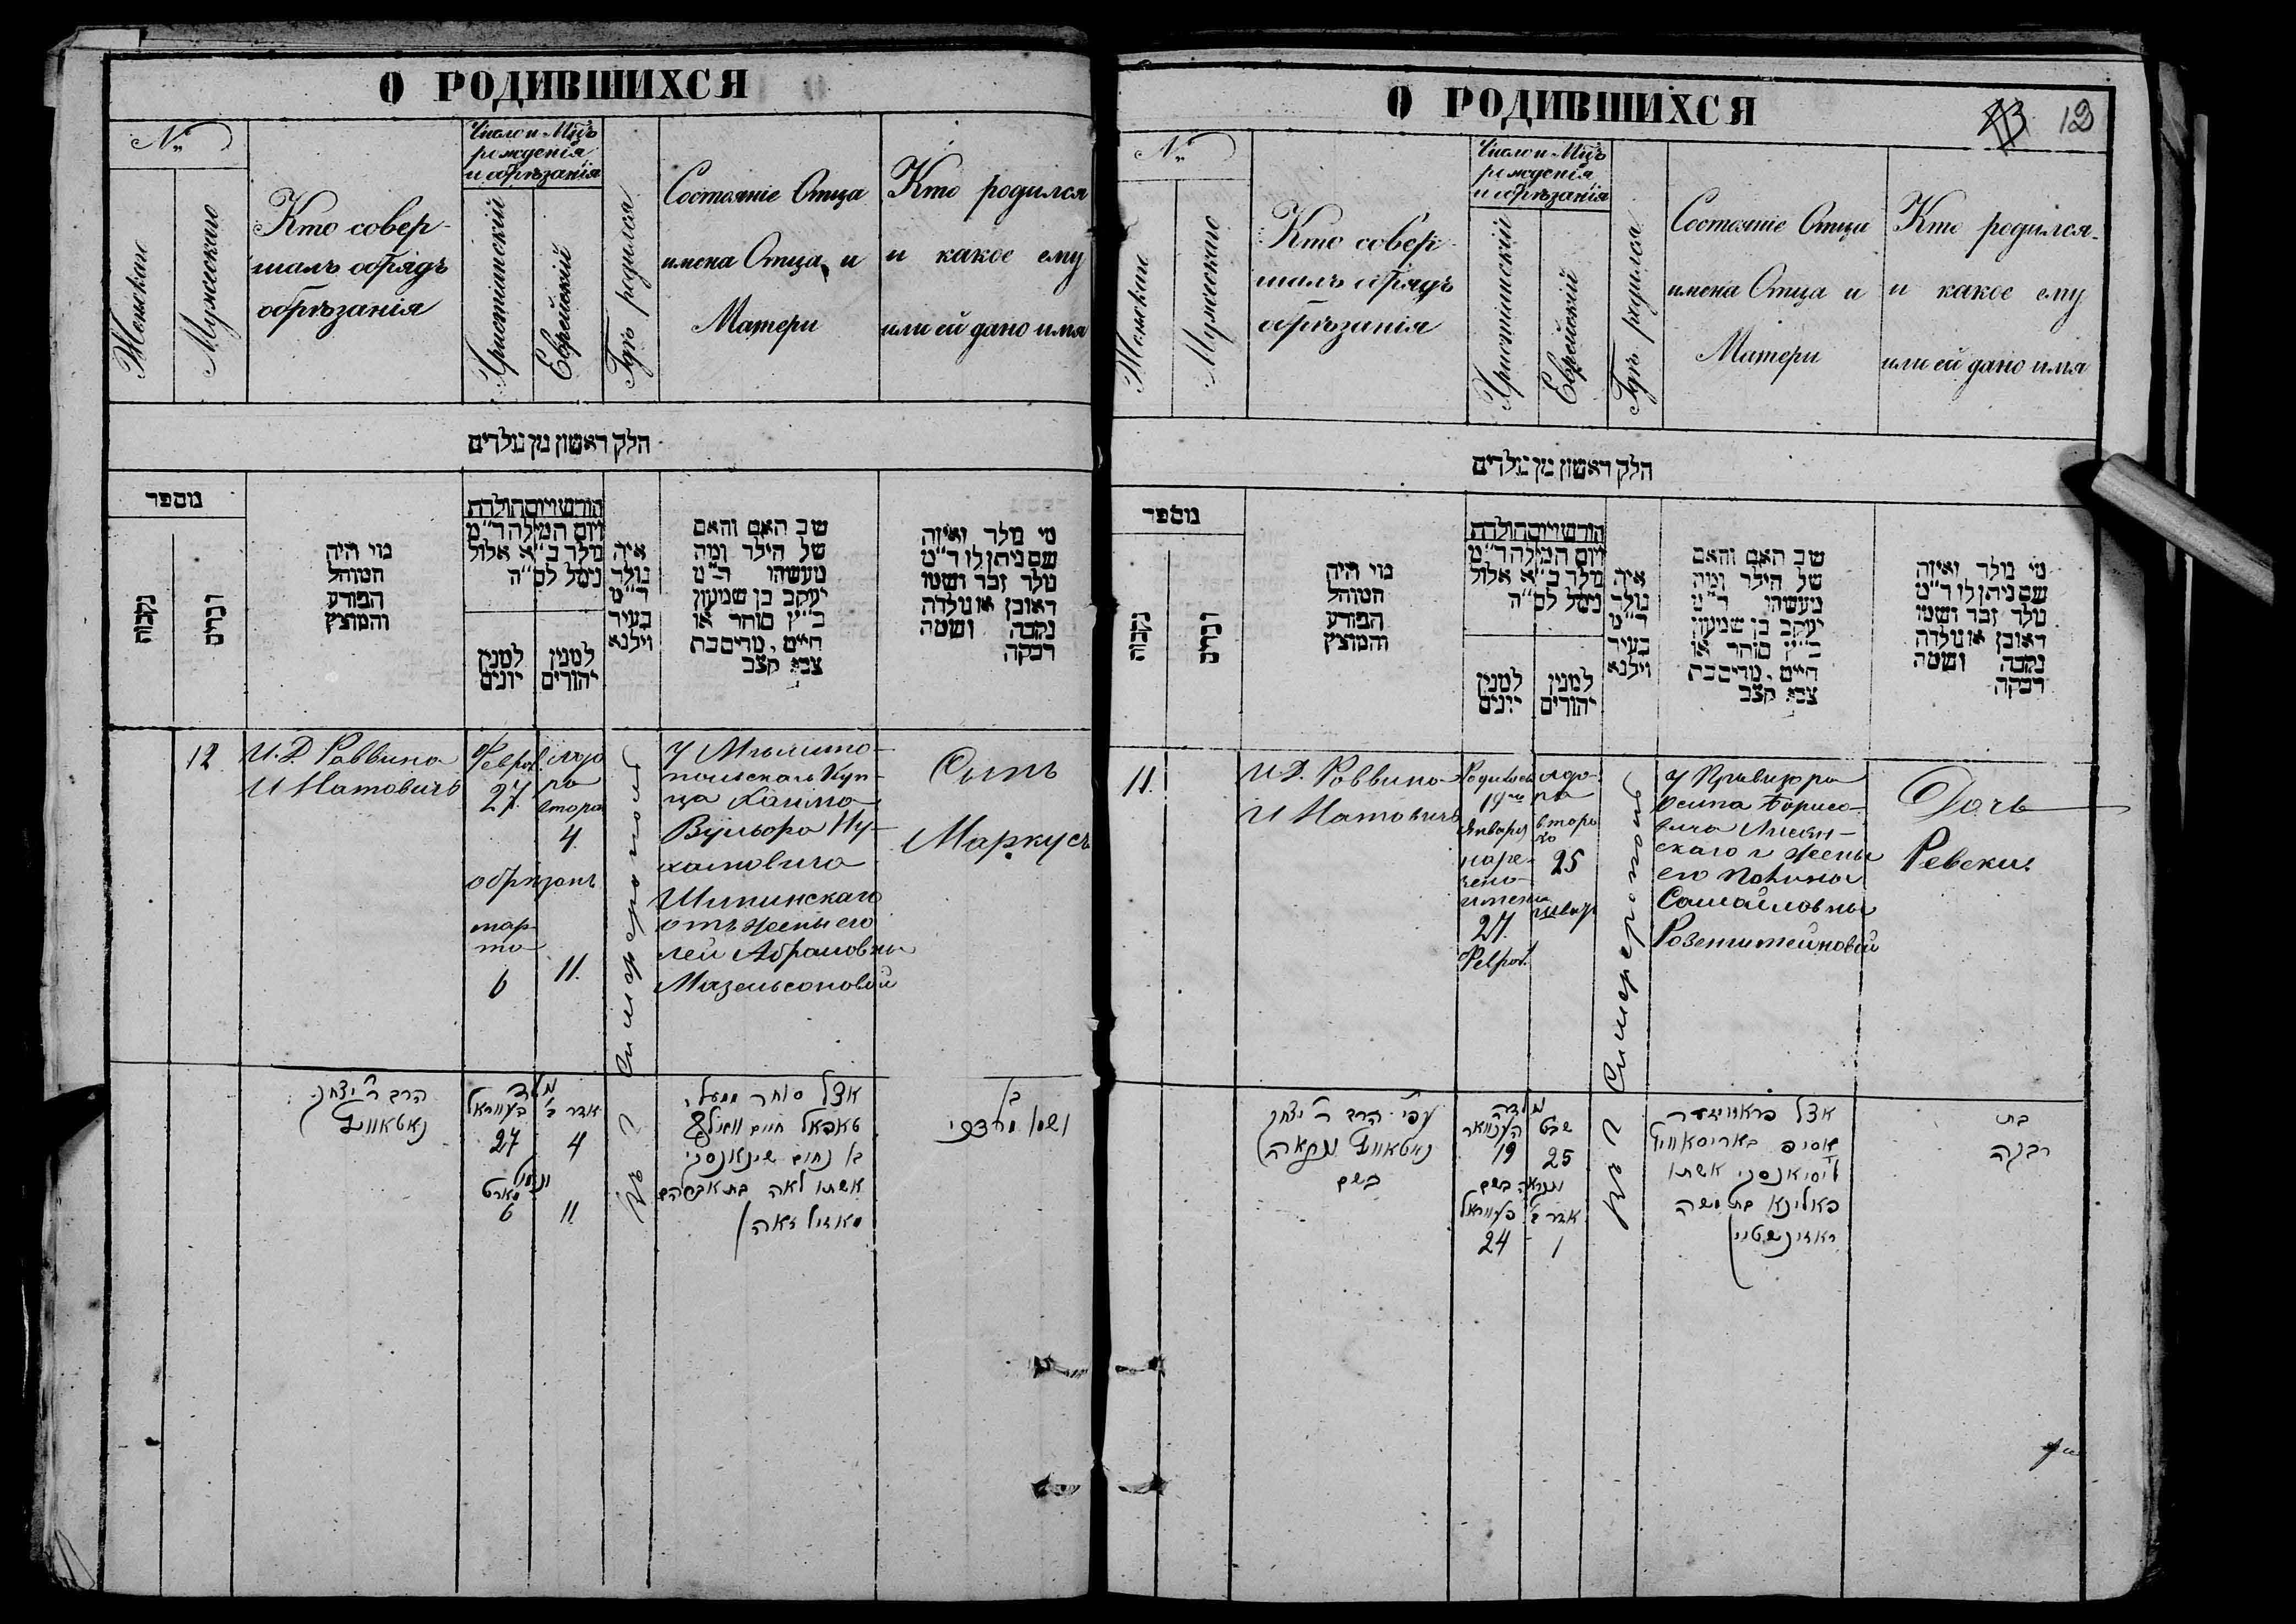 О РОДИВШИХСЯ
№
Женскаго
Мужескаго
Кто совер-
шалъ обрядъ
обрѣзанія
Число и Мцъ
рожденія
и обрѣзанія
Христіанскій
Еврейскій
Гдѣ родился
Состояніе Отца
имена Отца и
Матери
Кто родился
и какое ему
или ей дано имя
חלק ראשון מן נולדים
מספר
נקבות
זכרים
מי היה
המוהל
הפורע
והמוצץ
חודש ויום הולדת
ויום המילה ד"מ
נולד כ"א אלול
נימל לס"ה
למנין
יונים
למנין
יהודים
איה
נולד
ד"מ
בעיר
וילנא
שב האם והאם
של הילד ומה
מעשהו ד"מ
יעקב בן שמעון
כ"ץ סוחר או
חיים, מרים בת
צבי קצב
מי נולד ואיזה
שם ניתן לו ד"מ
נולד זכר ושמו
ראובן או נולדה
נקבה ושמה
רבקה
12
И. Д. Раввина
И Натовичъ
Феврал.
27
обрѣзанъ
мар-
та
6
Адо
ра
втора
4
11.
въ г Симферополѣ
у Мелито-
польскаго Куп-
ца Хаима
Вульфа Ну-
химовича
Шпинскаго
отъ жены его
Леи Абрамовны
Мазельсоновой
Сынъ
Маркусъ
הרב ר' יצחק
נאטאוויץ
נולד
פעווראל
27
אדר ב'
4
ונימול
מארט
6
11
אצל סוחר ממעלי
טאפאל חיים וואלף
בן נחום
אשתו לאה בת אברהם
בן
ושמו מרדכי
О РОДИВШИХСЯ
12
№
Женскаго
Мужескаго
Кто совер-
шалъ обрядъ
обрѣзанія
Число и Мцъ
рожденія
и обрѣзанія
Христіанскій
Еврейскій
Гдѣ родился
Состояніе Отца
имена Отца и
Матери
Кто родился
и какое ему
или ей дано имя
חלק ראשון מן נולדים
מספר
נקבות
זכרים
מי היה
המוהל
הפורע
והמוצץ
חודש ויום הולדת
ויום המילה ד"מ
נולד כ"א אלול
נימל לס"ה
למנין
יונים
למנין
יהודים
איה
נולד
ד"מ
בעיר
וילנא
שב האם והאם
של הילד ומה
מעשהו ד"מ
יעקב בן שמעון
כ"ץ סוחר או
חיים, מרים בת
צבי קצב
מי נולד ואיזה
שם ניתן לו ד"מ
נולד זכר ושמו
ראובן או נולדה
נקבה ושמה
רבקה
11.
И Д. Раввина
И Натовичъ
Родилась
19го
Января
наре-
чено
имена
27.
Феврал.
Адо-
ра
второ
го
25
въ г Симферополѣ
у Провизора
Осипа Борисо-
вича Лисян-
скаго и жены
его Полины
Самойловны
Розенштейновой
Дочь
Ревекка
עפ"י הרב ר' יצחק
נאטאוויץ נקראה
בשם
נולדה
יענוואר
19
שבט
25
ונקראה בשם
פעווראל
24
אדר ב'
1
אצל פראוויזאר
אסיפ באריסאוויץ
ליסיאנסקי אשתו
פאלינא בת משה
ראזינשטיין
בת
רבקה